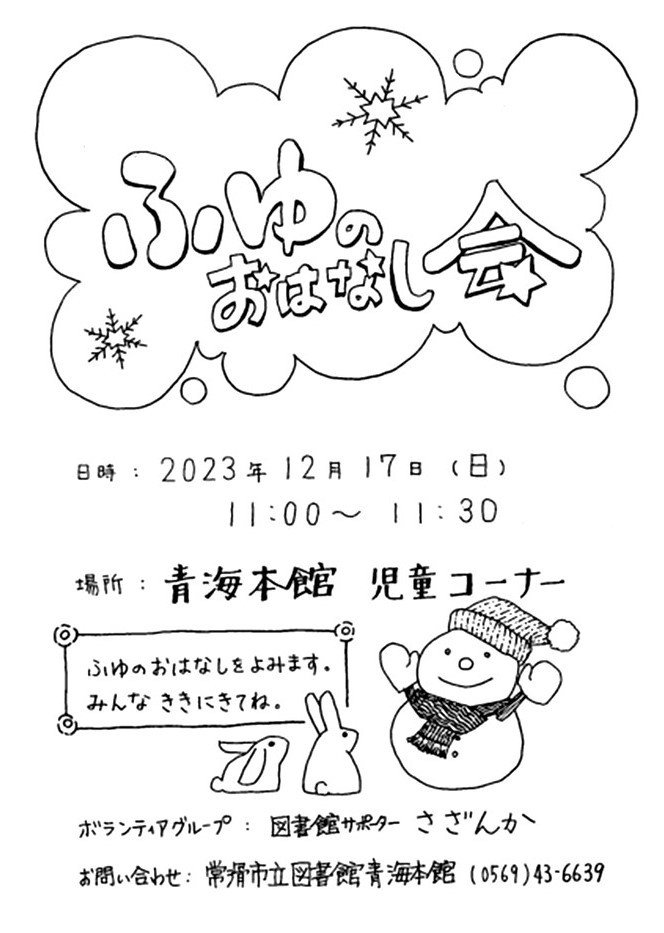 ふゆの
おはなし会
日時：2023年12月17日（日）
11:00～11:30
場所：青海本館 児童コーナー
ふゆのおはなしをよみます。
みんな ききにきてね。
ボランティアグループ：図書館サポーター さざんか
お問い合わせ：常滑市立図書館青海本館（0569）43-6639